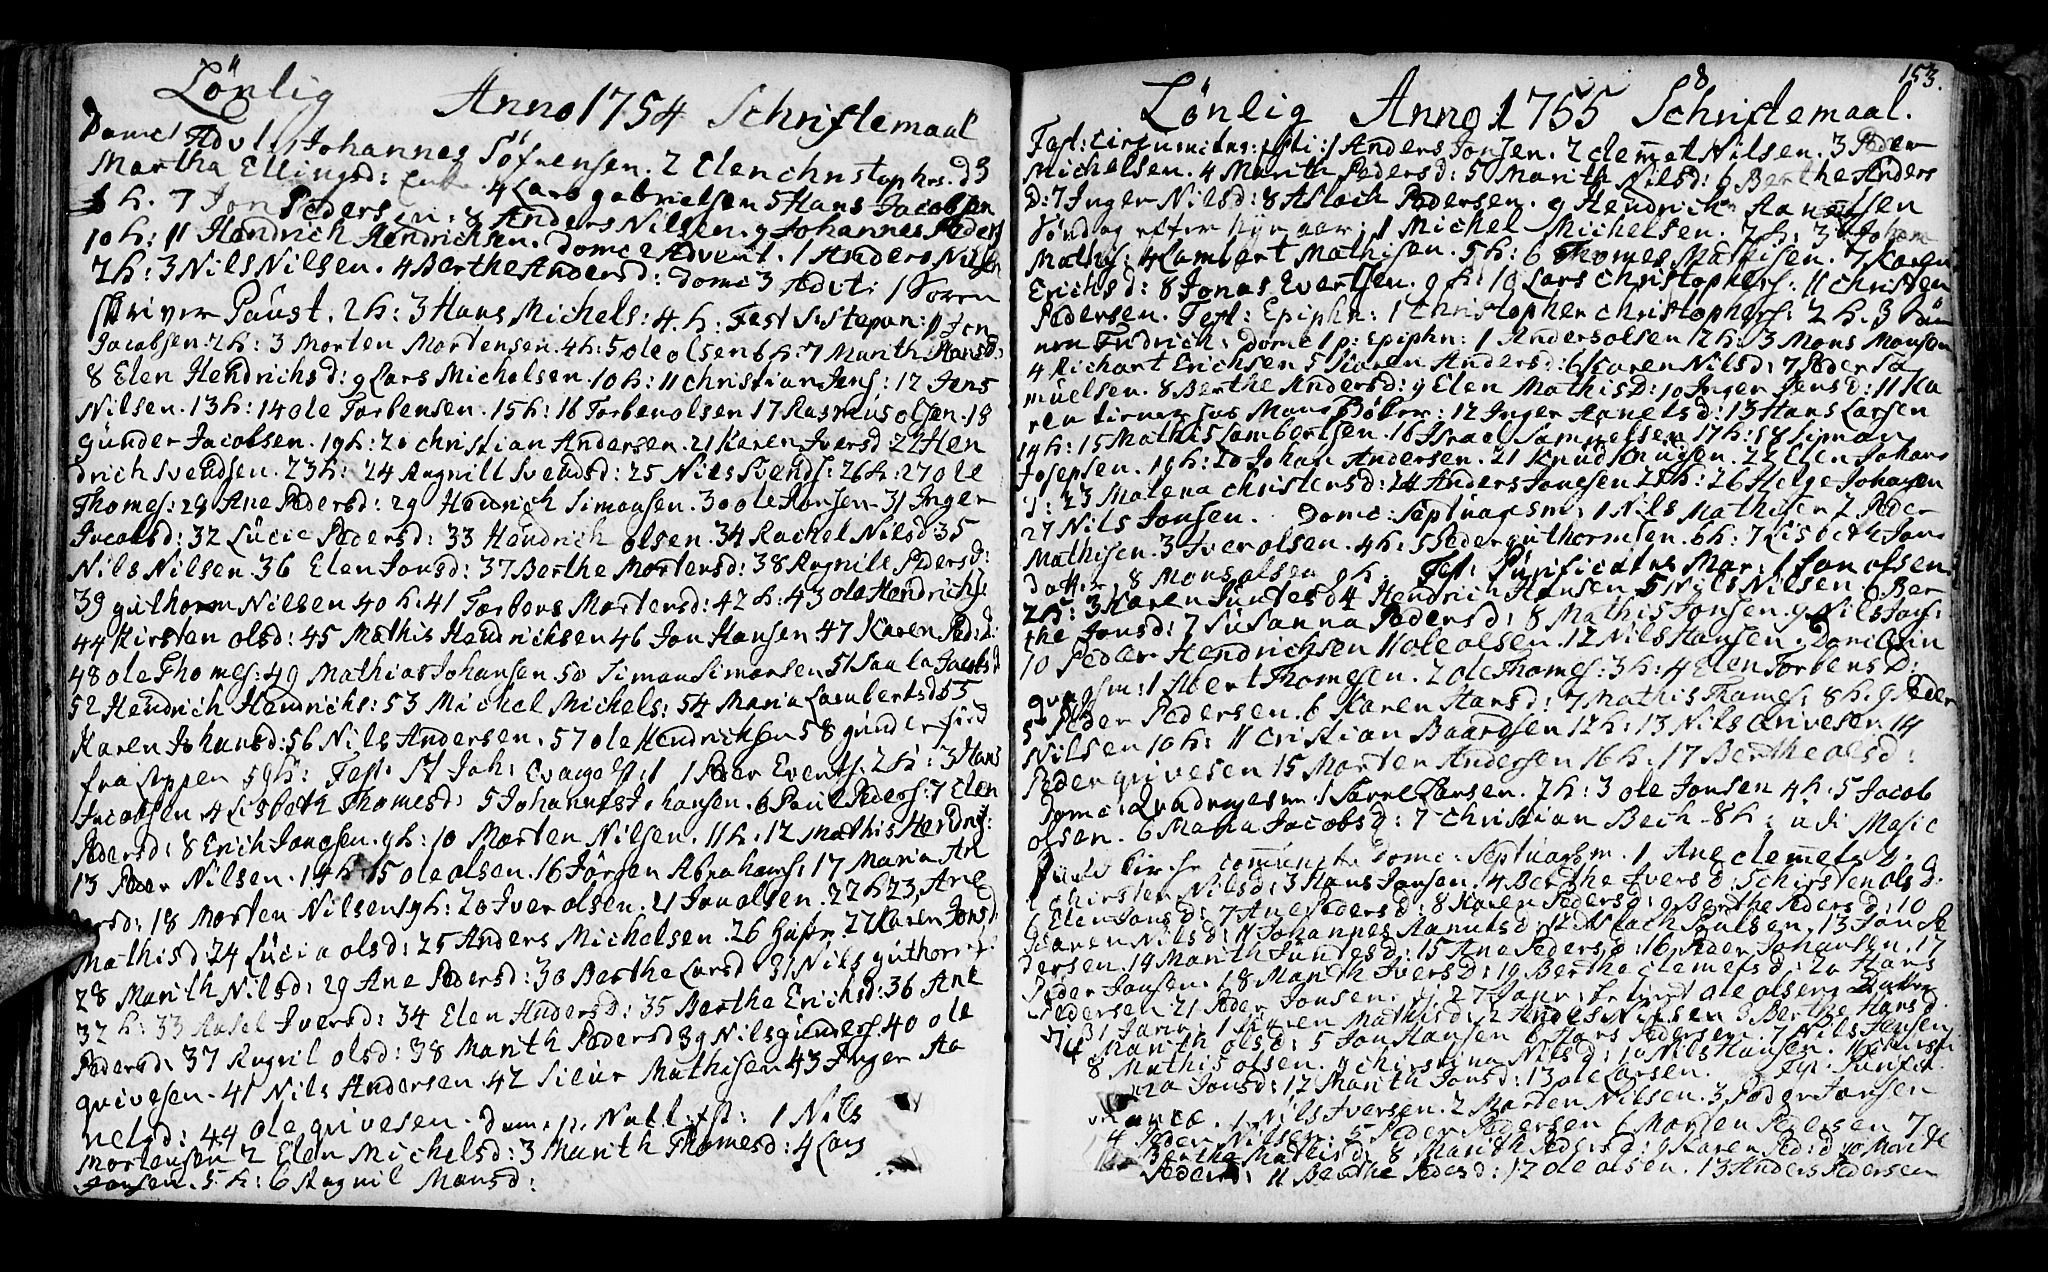 Lönlig Anno 1754 Schriftemaal
Domc: Adv 1 Johannes Söfrensen. 2 Elen Christophrs. d 3
Martha Ellingsd: 4 Lars gabrielsen 5 Hans Jacobsen
h. 7 Jon Pedersen: 8 Anders Nilsen. 9 Johannes Peders
10 h: 11 Hendrich Hendrichsen. Domc 2 Advent. 1 Anders Nilsen
2 h: 3 Nils Nilsen. 4 Berthe Andersd: Domc 3 Advt: 1 Soren
skriver Paust. 2 h: 3 Hans Michels: 4 h: Fest S: Stepan: 1 Jon
Jacobsen. 2 h: 3 Morten Mortensen. 4 h: 5 ole olsen 6 h: 7 Marith Hansd:
8 Elen Hendrichsd: 9 Lars Michelsen. 10 h: 11 Christian Jens: 12 Jens
Nilsen. 13 h: 14 ole Torbensen. 15 h: 16 Torben olsen 17 Rasmus olsen. 18
günder Jacobsen. 19 h: 20 Christian Andersen. 21 Karen Iversd: 22 Hen
drich Svendsen. 23 h: 24 Ragnill Svendsd: 25 Nils Svends: 26 h: 27 ole
Thomes: 28 Ane Pedersd: 29 Hendrich Simonsen. 30 ole Jonsen. 31 Inger
Jacobsd: 32 Lücie Pedersd: 33 Hendrich olsen. 34 Rachel Nilsd 35
Nils Nilsen. 36 Elen Jonsd: 37 Berthe Mortensd: 38 Ragnile Pedersd:
39 guthorm Nilsen 40 h: 41 Torbors Mortensd: 42 h: 43 ole Hendrichs:
44 Kirsten olsd: 45 Mathis Hendrichsen 46 Jon Hansen 47 Karen Ped: d:
48 ole Thomes: 49 Mathias Johansen. 50 Simon Simonsen 51 Jacobsd
52 Hendrich Hendrichs: 53 Michel Michels: 54 Maria Lambertsd 55
Karen Johansd: 56 Nils Andersen. 57 ole Hendrichsen 58 günder
fra 59 h: Fest: St Joh: Evangelst: 1 Peder Everts: 2 h: 3 Hans
Jacobsen 4 Lisbeth Thomesd: 5 Johannes Johansen. 6 Paul Peders: 7 Elen
Pedersd: 8 Erich Jonesen. 9 h: 10 Morten Nilsen. 11 h: 12 Mathis
13 Peder Nilsen. 14 h: 15 ole olsen. 16 Jörgen Abrahams: 17 Maria An
dersd: 18 Morten Nilsen 19 h: 20 Iver olsen. 21 Jon olsen. 22 h 23, Ane
Mathisd: 24 Lücia olsd: 25 Anders Michelsen. 26 27 Karen Jonsd
28 Marith Nilsd: 29 Ane Pedersd: 30 Berthe Larsd 31 Nils guthorms:
32 h: 33 Iversd: 34 Elen Andersd: 35 Berthe Erichsd: 36 Ane
Pedersd: 37 Ragnil olsd: 38 Marith Pedersd 39 Nils günders: 40 ole
quivesen. 41 Nils Andersen. 42 Mathisen 43 Inger Aa
nelsd: 44 ole quivesen. Dom. p. Natl: xsti: 1 Nils
Mortensen 2 Elen Michelsd: 3 Marith Thomesd: 4 Lars
Jonsen. 5 h: 6 Ragnil Monsd:
153.
Lönlig Anno 1755 Schriftemaal.
Fest: Circumcitns: xsti: 1 Anders Jonsen. 2 Clemet Nilsen. 3 Peder
Michelsen. 4 Marith Pedersd: 5 Marith Nilsd: 6 Berthe Anders
D: 7 Inger Nilsd: 8 Aslach Pedersen. 9 Hendrich
Söndag efter Nyt aar: 1 Michel Michelsen. 2 h: 3 Johan
Mathis: 4 Lambert Mathisen. 5 h: 6 Thomes Mathisen. 7 Karen
Erichsd: 8 Jonas Evertsen. 9 h: 10 Lars Christophers: 11 Christen
Pedersen. Fest: Epiphn: 1 Christopher Christophers: 2 h. 3
Fridrich: Domc 1 p: Epiphn: 1 Anders olsen 2 h: 3 Mons Monsen
4 Richart Erichsen 5 Karen Andersd: 6 Karen Nilsd: 7 Peder Sa
muelsen. 8 Berthe Andersd: 9 Elen Mathisd: 10 Inger Jensd: 11 Ka
ren 12 Inger 13 Hans Larsen
14 h: 15 Mathis Lambertsen. 16 Israel Samuelsen 17 h: 18 Simon
Josepsen. 19 h: 20 Johan Andersen. 21 Knud Knudsen. 22 Elen Johans
d: 23 Malena Christensd: 24 Anders Jonesen 25 h: 26 Helge Johansen
27 Nils Jonsen. Domc: Septuagsm: 1 Nils Mathisen 2 Peder
Mathisen. 3 Iver olsen. 4 h: 5 Peder guthormsen. 6 h: 7 Lisbeth Jons
datter. 8 Mons olsen 9 h. Fest: Purificatns Mar: 1 Jon olsen.
2 h: 3 Karen 4 Hendrich Hansen. 5 Nils Nilsen. 6 Ber
the Jonsd: 7 Susanna Pedersd: 8 Mathis Jonsen. 9 Nils Jons:
10 Peder Hendrichsen 11 ole olsen. 12 Nils Hansen.
1 Thomesen. 2 ole Thomes: 3 h: 4 Elen Torbensd:
5 Peder Pedersen. 6 Karen Hansd: 7 Mathis Thomes: 8 h. 9 Peder
Nilsen 10 h: 11 Cristian Baardsen 12 h: 13 Nils quivesen 14
Peder quivesen 15 Morten Andersen 16 h: 17 Berthe olsd:
Domc: Quadragesm: 1 Larsen. 2 h: 3 ole Jonsen 4 h: 5 Jacob
olsen. 6 Maria Jacobsd: 7 Christian Bech 8 h:
Domc: Septuagsm. 1 Ane Clemetsd:
2 Chirsten Nilsd: 3 Hans Jonsen. 4 Berthe Iversd: 5 Chirsten olsd.
6 Elen Jonsd: 7 Ane Pedersd: 8 Karen Pedersd: 9 Berthe Pedersd: 10
Karen Nilsd: 11 Johannes 12 Aslach Poulsen. 13 Jon Pe
dersen. 14 Marith 15 Ane Pedersd: 16 Peder Johansen. 17
Peder Jonsen. 18 Marith Iversd: 19 Berthe Clemetsd: 20 Hans
Pedersen. 21 Peder Jonsen. 27 Janr: ole olsen
31 Janr: 1 Karen Mathisd: 2 Anders Nilsen 3 Berthe Hansd:
4 Marith olsd: 5 Jon Hansen 6 Hans Pedersen. 7 Nils Jensen
8 Mathis olsen. 9 Chirstina Nilsd: 10 Nils Hansen. 11
Jonsd: 12 Marith Jonsd: 13 ole Larsen.
1 Nils Iversen. 2 Morten Nilsen. 3 Peder Jonsen
4 Peder Nilsen: 5 Peder Pedersen 6 Morten Pedersen 7
Berthe Mathisd: 8 Marith Pedersd: 9 Karen Ped: d 10 Marite
Pedersd: 11 Berthe Pedersd: 12 ole olsen. 13 Anders Pedersen